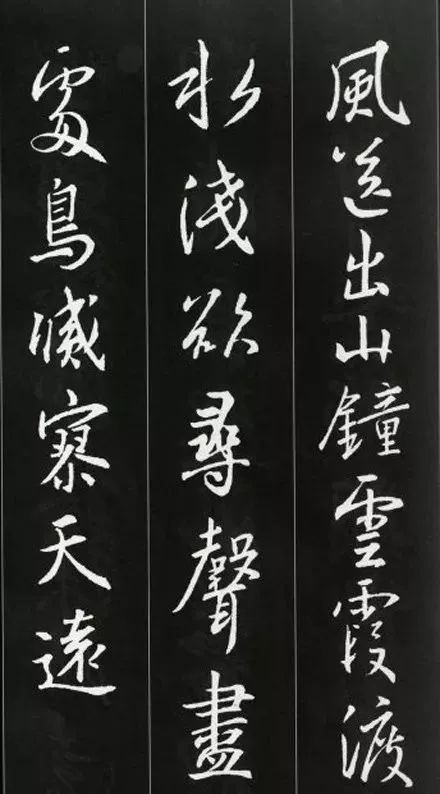 風送出山鐘雲霞渡
水淺欲尋聲盡
處鳥滅寮天遠